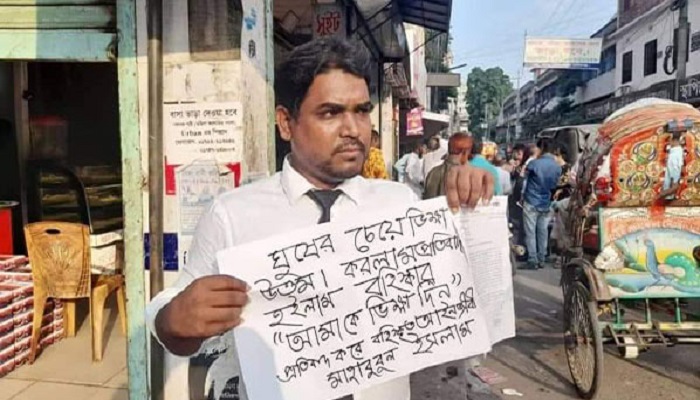 সুইট
বাসা ভাড়া দেওয়া হবে
Urban
ঘুষের চেয়ে ভিক্ষা
উত্তম। করলাম প্রতিবাদ
হইলাম বহিষ্কার
"আমাকে ভিক্ষা দিন"
প্রতিবাদ করে বহিষ্কৃত আইনজীবী
মাহাবুবুল ইসলাম